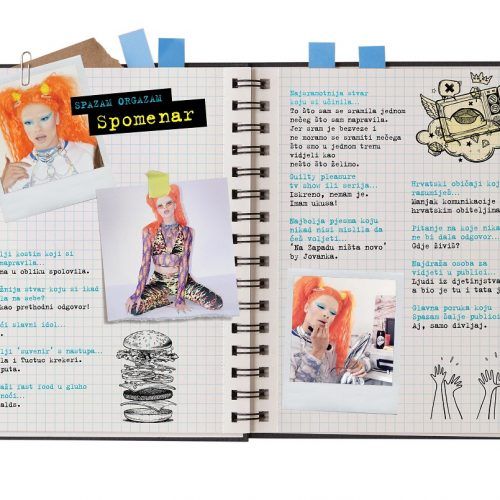 SPAZAM ORGAZAM
Spomenar
kostin koji si
napravila...
u obliku spolovila.
stvar koju si ikad
na sebe?
kao prethodni odgovor!
slavni idol...
'suvenir' s nastupa...
i Tuctuc krekeri.
puta.
fast food u gluho
noći...
Najsramotnija stvar
koju si učinila...
To što sam se sramila jednom
nečeg što sam napravila.
Jer sram je bezveze i
ne moramo se sramiti nečega
što smo u jednom trenu
vidjeli kao
nešto što želimo.
Guilty pleasure
tv show ili serija...
Iskreno, nemam je.
Imam ukusa!
Najbolja pjesma koju
nikad nisi mislila da
ćeš voljeti...
'Na Zapadu ništa novo'
by Jovanka.
Hrvatski običaj koji
razumiješ...
Manjak komunikacije
hrvatskim obiteljima
Pitanje na koje nika
ne bi dala odgovor...
Gdje živiš?
Najdraža osoba za
vidjeti u publici...
Ljudi iz djetinjstva
a bio je tu i tata
Glavna poruka koju
Spazam šalje publici
Aj, samo divljaj.